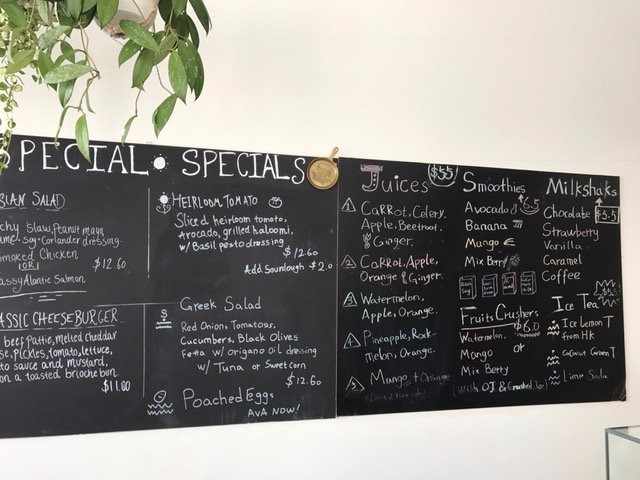 SPECIAL SPECIALS
SALAD
slaw, Peanut mayo
soy-Coriander dressing
Smoked Chicken
[OR]
Atlantic Salmon
$12.60
CLASSIC CHEESEBURGER
beef pattie, melted cheddar
pickles, tomato, lettuce,
sauce and mustard,
on a toasted brioche bun.
$11.80
HEIRLOOM TOMATO
Sliced heirloom tomato,
Avocado, grilled haloomi,
w/ Basil pesto dressing
$12.60
Add Sourdough $2.0
Greek Salad
Red Onion, Tomatoss,
Cucumbers, Black Olives
Feta w/ origano oil dressing
w/ Tuna or Sweetcorn
$12.60
Poached Eggs
AvA NOW!
Juices
$5.5
1 CaRRot, Celery,
Apple, Beetroot,
Ginger.
2 CaRRot, Apple,
Orange & Ginger.
3 Watermelon,
Apple, Orange.
4 Pineapple, Rock-
melon, Orange.
5 Mango + Orange
Smoothies
$6.5
Avocado
Banana
Mango
Mix Berry
Fruits Crushers
$6.0
Watermelon.
Mango or
Mix Berry
(With OJ & Crushed Ice)
Milkshaks
Chocolate $5.5
Strawberry
Vanilla
Caramel
Coffee
Ice Tea
Ice Lemon T
from HK
Coconut Green T
Lime Soda